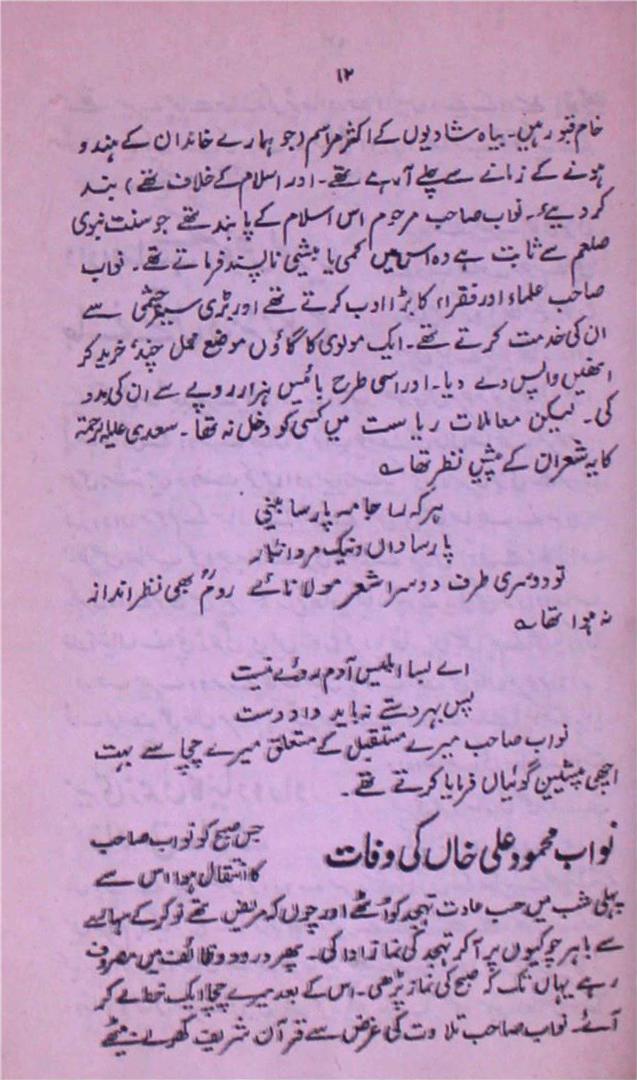 ۱۲
خام قبور ہیں۔ بیاہ شادیوں کے اکثر مراسم (جو ہمارے خاندان کے ہندو
ہونے کے زمانے سے چلے آ رہے تھے۔ اور اسلام کے خلاف تھے) بند
کر دیے۔ نواب صاحب مرحوم اس اسلام کے پابند تھے جو سنت نبوی
صلعم سے ثابت ہے وہ اس میں کمی یا بیشی ناپسند فرماتے تھے۔ نواب
صاحب علماء اور فقراء کا بڑا ادب کرتے تھے اور بڑی سیر چشمی سے
ان کی خدمت کرتے تھے۔ ایک مولوی کا گاؤں موضع محل چند خرید کر
انھیں واپس دے دیا۔ اور اسی طرح بائیس ہزار روپے سے ان کی مدد
کی۔ لیکن معاملات ریاست میں کسی کو دخل نہ تھا۔ سعدی علیہ الرحمتہ
کا یہ شعر ان کے پیش نظر تھا ؎
ہر کہ را جامہ پارسا بینی
پارسا داں و نیک مرد انگار
تو دوسری طرف دوسرا شعر مولانائے رومؒ بھی نظر انداز
نہ ہوا تھا ؎
اے بسا ابلیس آدم روئے نیست
پس بہر دستے نباید داد دست
نواب صاحب میرے مستقبل کے متعلق میرے چچا سے بہت
اچھی پیشین گوئیاں فرمایا کرتے تھے۔
نواب محمود علی خاں کی وفات
جس صبح کو نواب صاحب
کا انتقال ہوا اس سے
پہلی شب میں حسب عادت تہجد کو اُٹھے اور چوں کہ مریض تھے نوکر کے سہارے
سے باہر چوکیوں پر آ کر تہجد کی نماز ادا کی۔ پھر درود و وظائف میں مصروف
رہے یہاں تک کہ صبح کی نماز پڑھی۔ اس کے بعد میرے چچا ایک خط لے کر
آئے۔ نواب صاحب تلاوت کی غرض سے قرآن شریف کھولے بیٹھے